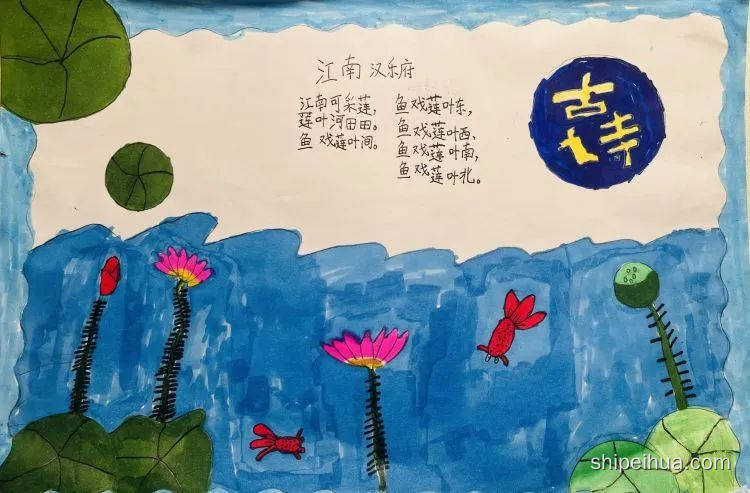 江南 汉乐府
江南可采莲,
莲叶河田田。
鱼戏莲叶间。
鱼戏莲叶东,
鱼戏莲叶西,
鱼戏莲叶南,
鱼戏莲叶北。
古诗
shipeihua.com